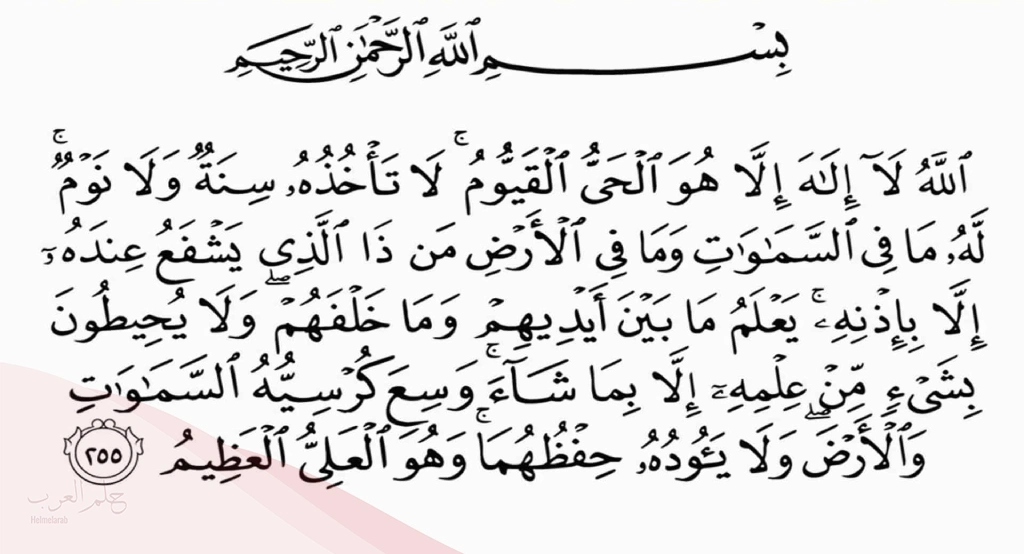 بِسْمِ ٱللَّهِ ٱلرَّحْمَٰنِ ٱلرَّحِيمِ
ٱللَّهُ لَآ إِلَٰهَ إِلَّا هُوَ ٱلْحَىُّ ٱلْقَيُّومُ ۚ لَا تَأْخُذُهُۥ سِنَةٌ وَلَا نَوْمٌ ۚ
لَّهُۥ مَا فِى ٱلسَّمَٰوَٰتِ وَمَا فِى ٱلْأَرْضِ ۗ مَن ذَا ٱلَّذِى يَشْفَعُ عِندَهُۥٓ
إِلَّا بِإِذْنِهِۦ ۚ يَعْلَمُ مَا بَيْنَ أَيْدِيهِمْ وَمَا خَلْفَهُمْ ۖ وَلَا يُحِيطُونَ
بِشَىْءٍ مِّنْ عِلْمِهِۦٓ إِلَّا بِمَا شَآءَ ۚ وَسِعَ كُرْسِيُّهُ ٱلسَّمَٰوَٰتِ
وَٱلْأَرْضَ ۖ وَلَا يَـُٔودُهُۥ حِفْظُهُمَا ۚ وَهُوَ ٱلْعَلِىُّ ٱلْعَظِيمُ ٢٥٥
حلم العرب
Helmelarab